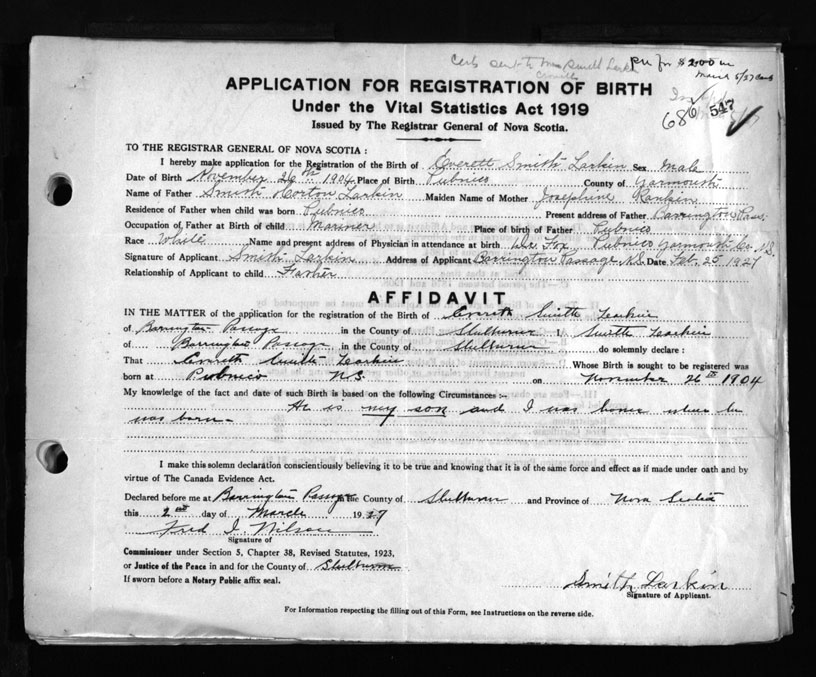 Pd for $2.00 in
March 5/27
APPLICATION FOR REGISTRATION OF BIRTH
686 547
Under the Vital Statistics Act 1919
Issued by The Registrar General of Nova Scotia.
TO THE REGISTRAR GENERAL OF NOVA SCOTIA :
I hereby make application for the Registration of the Birth of Everett Smith Larkin Sex Male
Date of Birth November 26th 1904 Place of Birth Pubnico County of Yarmouth
Name of Father Smith Horton Larkin Maiden Name of Mother Josephine Rankin
Residence of Father when child was born Pubnico Present address of Father Barrington Pass.
Occupation of Father at Birth of child Mariner Place of birth of Father Pubnico
Race White Name and present address of Physician in attendance at birth Dr. Fox, Pubnico Yarmouth Co. N.S.
Signature of Applicant Smith Larkin Address of Applicant Barrington Passage, N.S. Date Feb. 25 1927
Relationship of Applicant to child Father
AFFIDAVIT
IN THE MATTER of the application for the registration of the Birth of Everett Smith Larkin
of Barrington Passage in the County of Shelburne I, Smith Larkin
of Barrington Passage in the County of Shelburne do solemnly declare :
That Everett Smith Larkin Whose Birth is sought to be registered was
born at Pubnico N.S. on November 26th 1904
My knowledge of the fact and date of such Birth is based on the following Circumstances :-
He is my son and I was home when he
was born-
I make this solemn declaration conscientiously believing it to be true and knowing that it is of the same force and effect as if made under oath and by
virtue of The Canada Evidence Act.
Declared before me at Barrington Passage in the County of Shelburne and Province of Nova Scotia
this 2nd day of March 1927
Fred I. Wilson
Signature of
Commissioner under Section 5, Chapter 38, Revised Statutes, 1923,
or Justice of the Peace in and for the County of Shelburne
If sworn before a Notary Public affix seal.
Smith Larkin
Signature of Applicant.
For Information respecting the filling out of this Form, see Instructions on the reverse side.